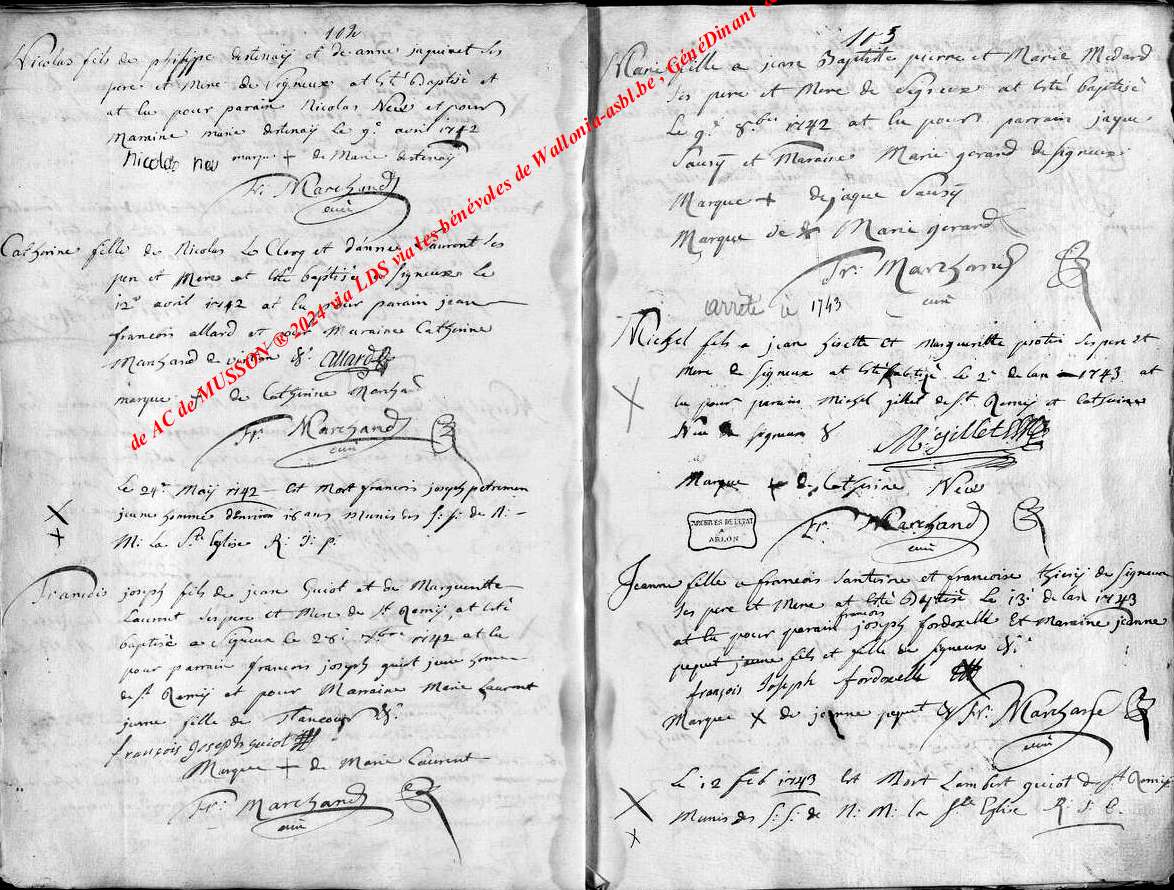 102
Nicolas fils de philippe destenay et de anne jaquinet ses
pere et Mere de Signeux at été Baptisé et
at lu pour parain Nicolas Neÿs et pour
Maraine marie destenaÿ le 9e avril 1742
Nicolas neu marque + de Marie destenaÿ
Fr: Marchand
curé
Catherine fille de Nicolas Le Clerq et d'anne Laurent ses
pere et Mere at eté baptisée a Signeux le
12e avril 1742 at lu pour parain jean
françois allard et pour Maraine Catherine
Marchand de &: allard
marque + de Catherine Marchand
Fr: Marchand
curé
Le 24e Maÿ 1742 Est Mort francois joseph petremen
jeune homme d'Environ 18 ans Munis des S: S: de N:
M: la Ste Eglise R: J: p:
Francois joseph fils de jean Guiot et de Margueritte
Laurent ses pere et Mere de St Remÿ at eté
baptisé a Signeux le 28: 1742 at lu
pour parrain francois joseph guiot jeune homme
de St Remÿ et pour Marraine Marie Laurent
jeune fille de &:
françois Joseph guiot
Marque + de Marie Laurent
Fr: Marchand
curé
103
Marie fille a jean Baptiste pierre et Marie Medard
ses pere et Mere de Signeux at eté baptisé
Le 9e 8bre 1742 at lu pour parrain jaque
Sausÿ et Maraine Marie gerard de signeux
Marque + de jaque Sausÿ
Marque de + Marie gerard
Fr: Marchand
curé
arrêté à 1743
Michel fils a jean et Margueritte ses pere et
Mere de Signeux at eté batisé Le 2e de lan 1743 at
lu pour parain Michel gillet de St Remÿ et Catherine
Neÿs de signeux &
M: gillet
Marque + de Catherine Neÿs
ARCHIVES DE L'ETAT
A
ARLON
Fr: Marchand
curé
Jeanne fille a francois Santerine et francoise thierÿ de Signeux
ses pere et Mere at eté Baptisé Le 13: de lan 1743
at lu pour parain françois joseph fordoxelle Et Maraine jeanne
pequet jeune fils et fille de signeux &:
françois Joseph fordoxelle
Marque X de jeanne pequet & Fr: Marchand
curé
Le 12 feb 1743 Est Mort Lambert guiot de St Remÿ
Munis des S: S: de N: M: la Ste Eglise R. J. P.
de AC de MUSSON ® 2024 via LDS via les bénévoles de Wallonia-asbl.be , GénéDinant